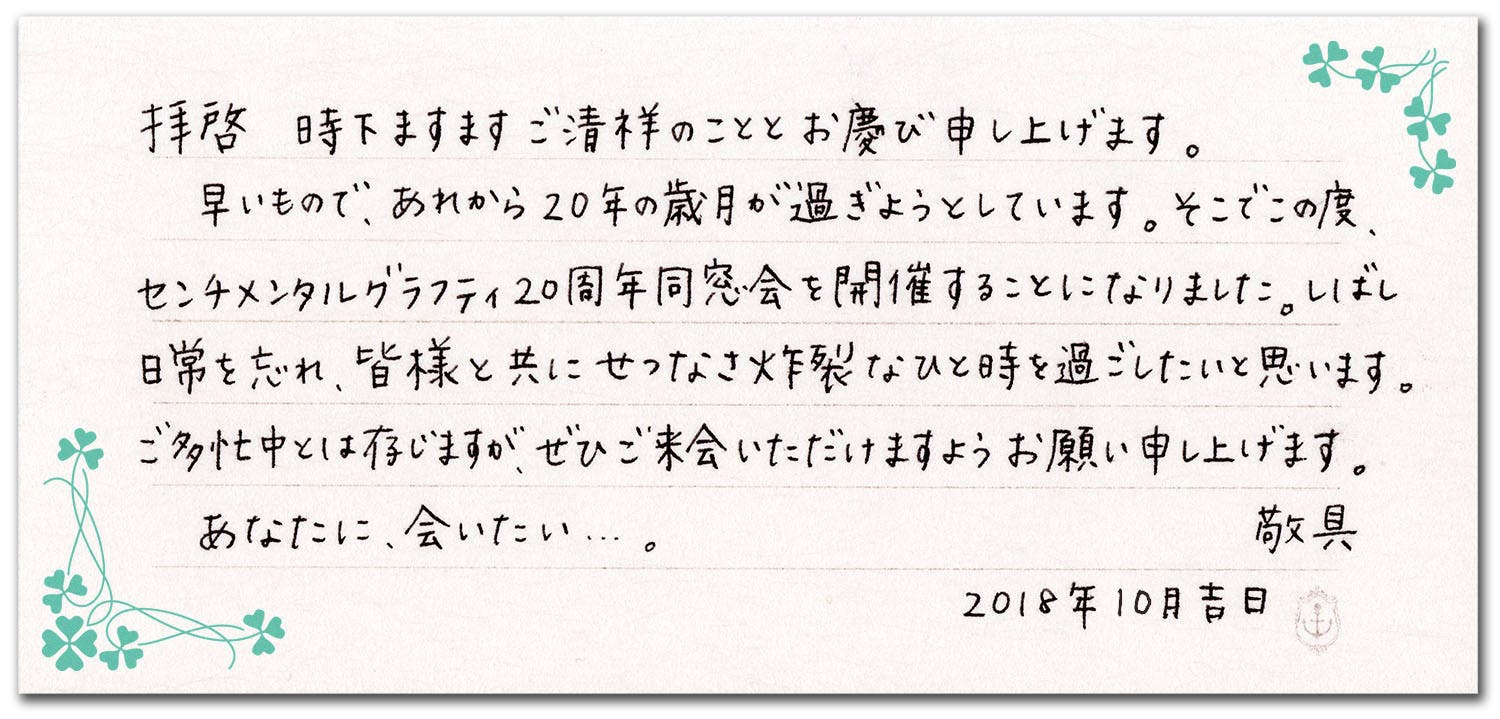 拝啓　時下ますますご清祥のこととお慶び申し上げます。
早いもので、あれから20年の歳月が過ぎようとしています。そこでこの度、
センチメンタルグラフティ20周年同窓会を開催することになりました。しばし
日常を忘れ、皆様と共にせつなさ炸裂なひと時を過ごしたいと思います。
ご多忙中とは存じますが、ぜひご来会いただけますようお願い申し上げます。
あなたに、会いたい…。　敬具
2018年10月吉日